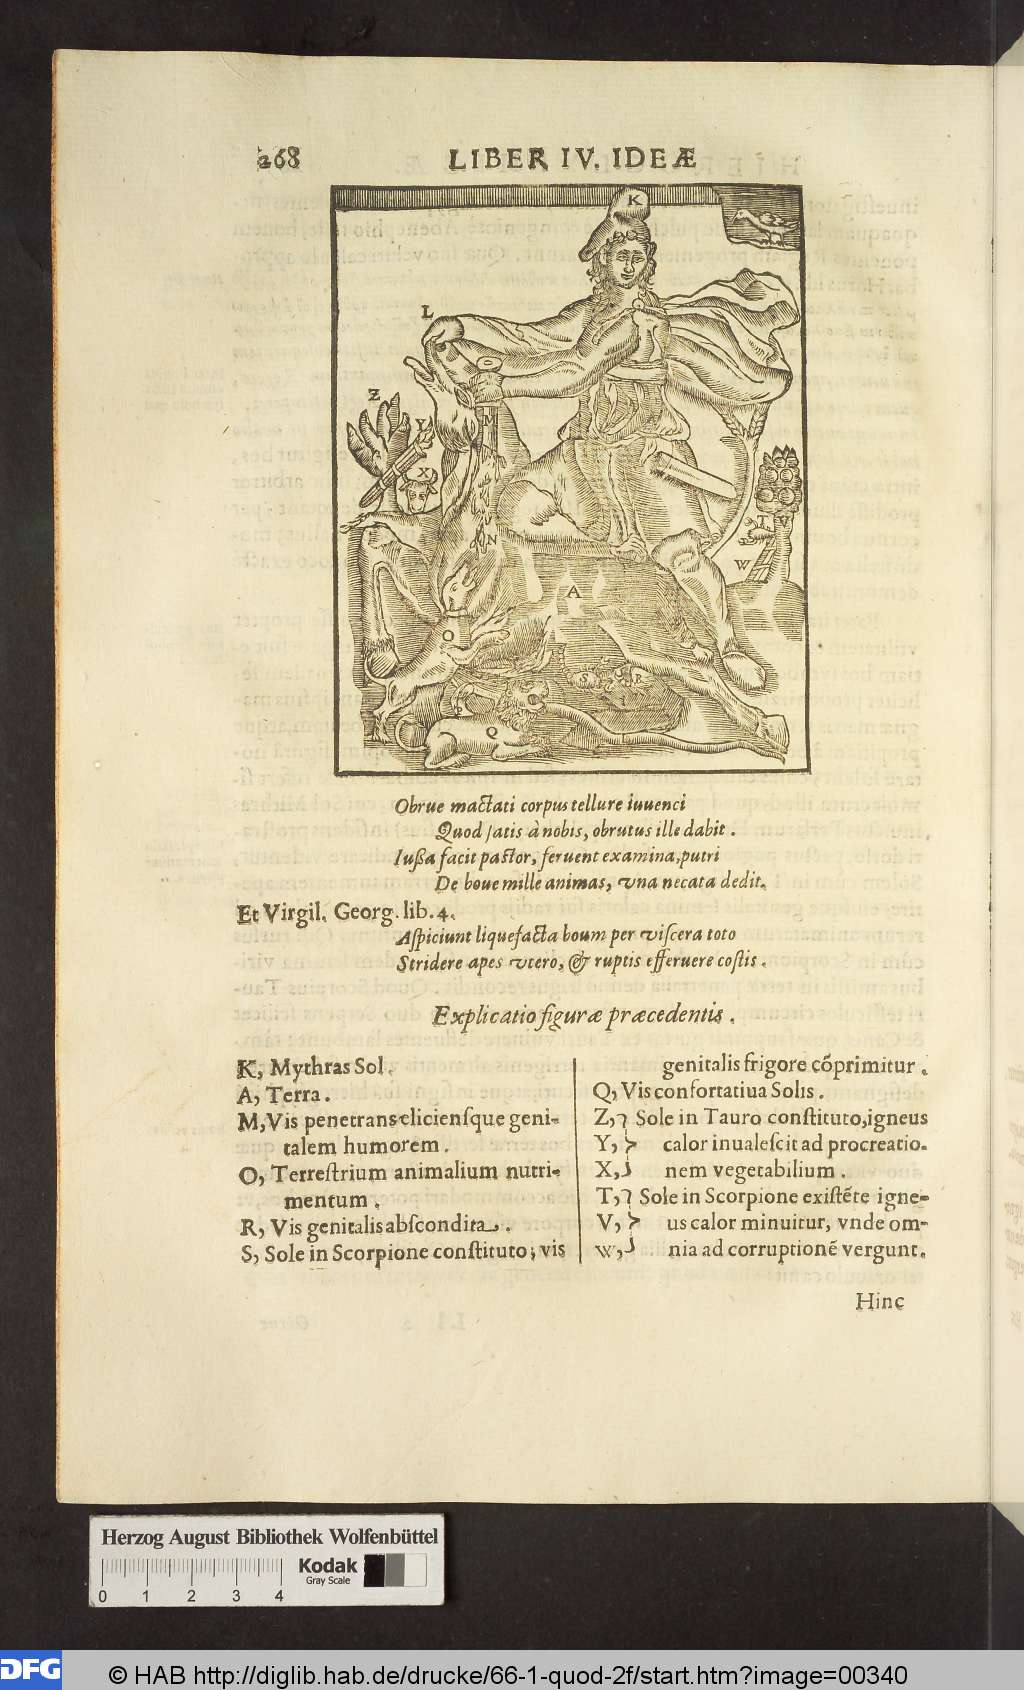 268
LIBER IV. IDEÆ
K
L
Z
Y
X
M
N
T
V
W
A
O
S
R
P
Q
Obrue mactati corpus tellure iuuenci
Quod satis à nobis, obrutus ille dabit.
Iußa facit pastor, feruent examina, putri
De boue mille animas, vna necata dedit.
Et Virgil. Georg. lib. 4.
Aspiciunt liquefacta boum per viscera toto
Stridere apes vtero, & ruptis efferuere costis.
Explicatio figuræ præcedentis.
K, Mythras Sol.
A, Terra.
M, Vis penetrans eliciensque geni-
talem humorem.
O, Terrestrium animalium nutri-
mentum.
R, Vis genitalis abscondita.
S, Sole in Scorpione constituto; vis
genitalis frigore cõprimitur.
Q, Vis confortatiua Solis.
Z, Sole in Tauro constituto, igneus
Y, calor inualescit ad procreatio-
X, nem vegetabilium.
T, Sole in Scorpione existẽte igne-
V, us calor minuitur, vnde om-
W, nia ad corruptionẽ vergunt.
Hinc
Herzog August Bibliothek Wolfenbüttel
Kodak
Gray Scale
0 1 2 3 4
DFG
© HAB http://diglib.hab.de/drucke/66-1-quod-2f/start.htm?image=00340